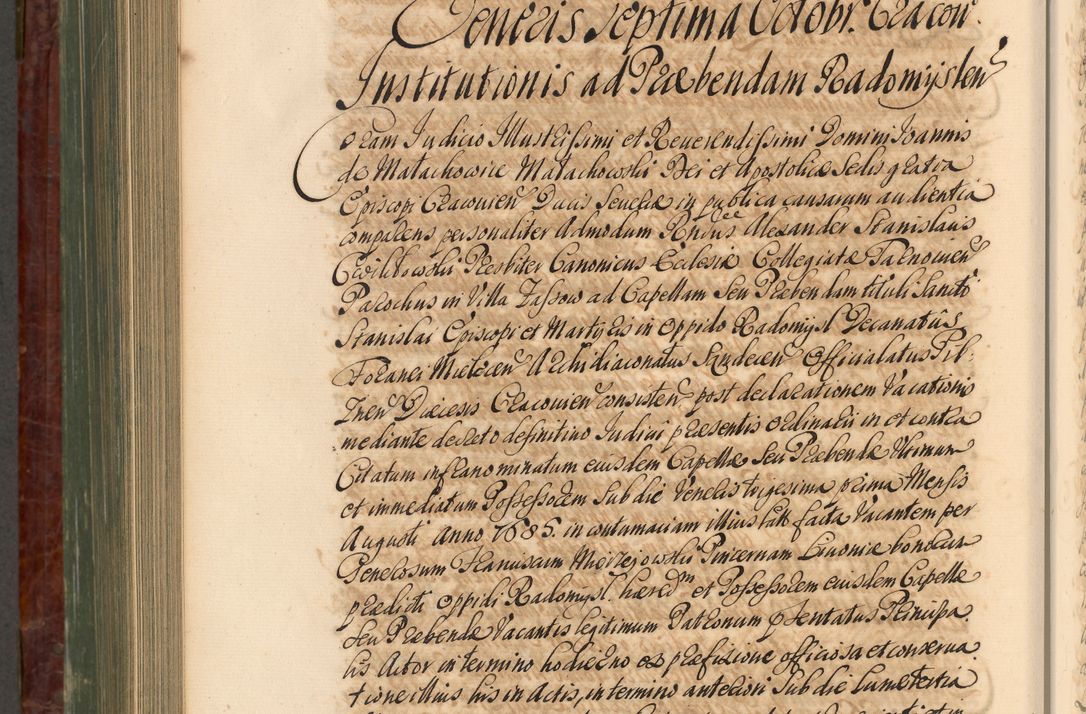 Veneris Septima Octobr. Cracoviæ
Institutionis ad Præbendam Radomyslen
Coram Iudicio Illustrissimi et Reverendissimi Domini Ioannis
de Małachowice Małachowski Dei et Apostolicæ Sedis gratia
Episcopi Cracovien Ducis Severiæ in publica causarum audientia
comparens personaliter Admodum Rndus Alexander Stanislaus
Presbiter Canonicus Ecclesiæ Collegiatæ Tarnovien
Parochus in Villa Zassow ad Capellam seu Præbendam tituli Sancti
Stanislai Episcopi et Martyris in oppido Radomysl Decanatus
Foranei Mielecen Archidiaconatus Officialatus Pil-
znen Diœcesis Cracovien consisten post declarationem Vacationis
mediante decreto definitivo Iudicii præsentis ordinarii in et contra
Citatum infranominatum eiusdem Capellæ seu Præbendæ Ultimum
et immediatum Possessorem sub die Veneris trigesima prima Mensis
Augusti Anno 1685. in contumaciam illius lata facta Vacantem per
Generosum Franciscum Pincernam Livoniæ bonorum
prædicti oppidi Radomysl. hæredm et Possessorem eiusdem Capellæ
seu Præbendæ Vacantis legitimum Patronum pntatus Principa-
lis Actor in termino hodierno ex præfixione officiosa et conserva-
tione illius his in Actis, in termino anteriori sub die Lunæ tertia